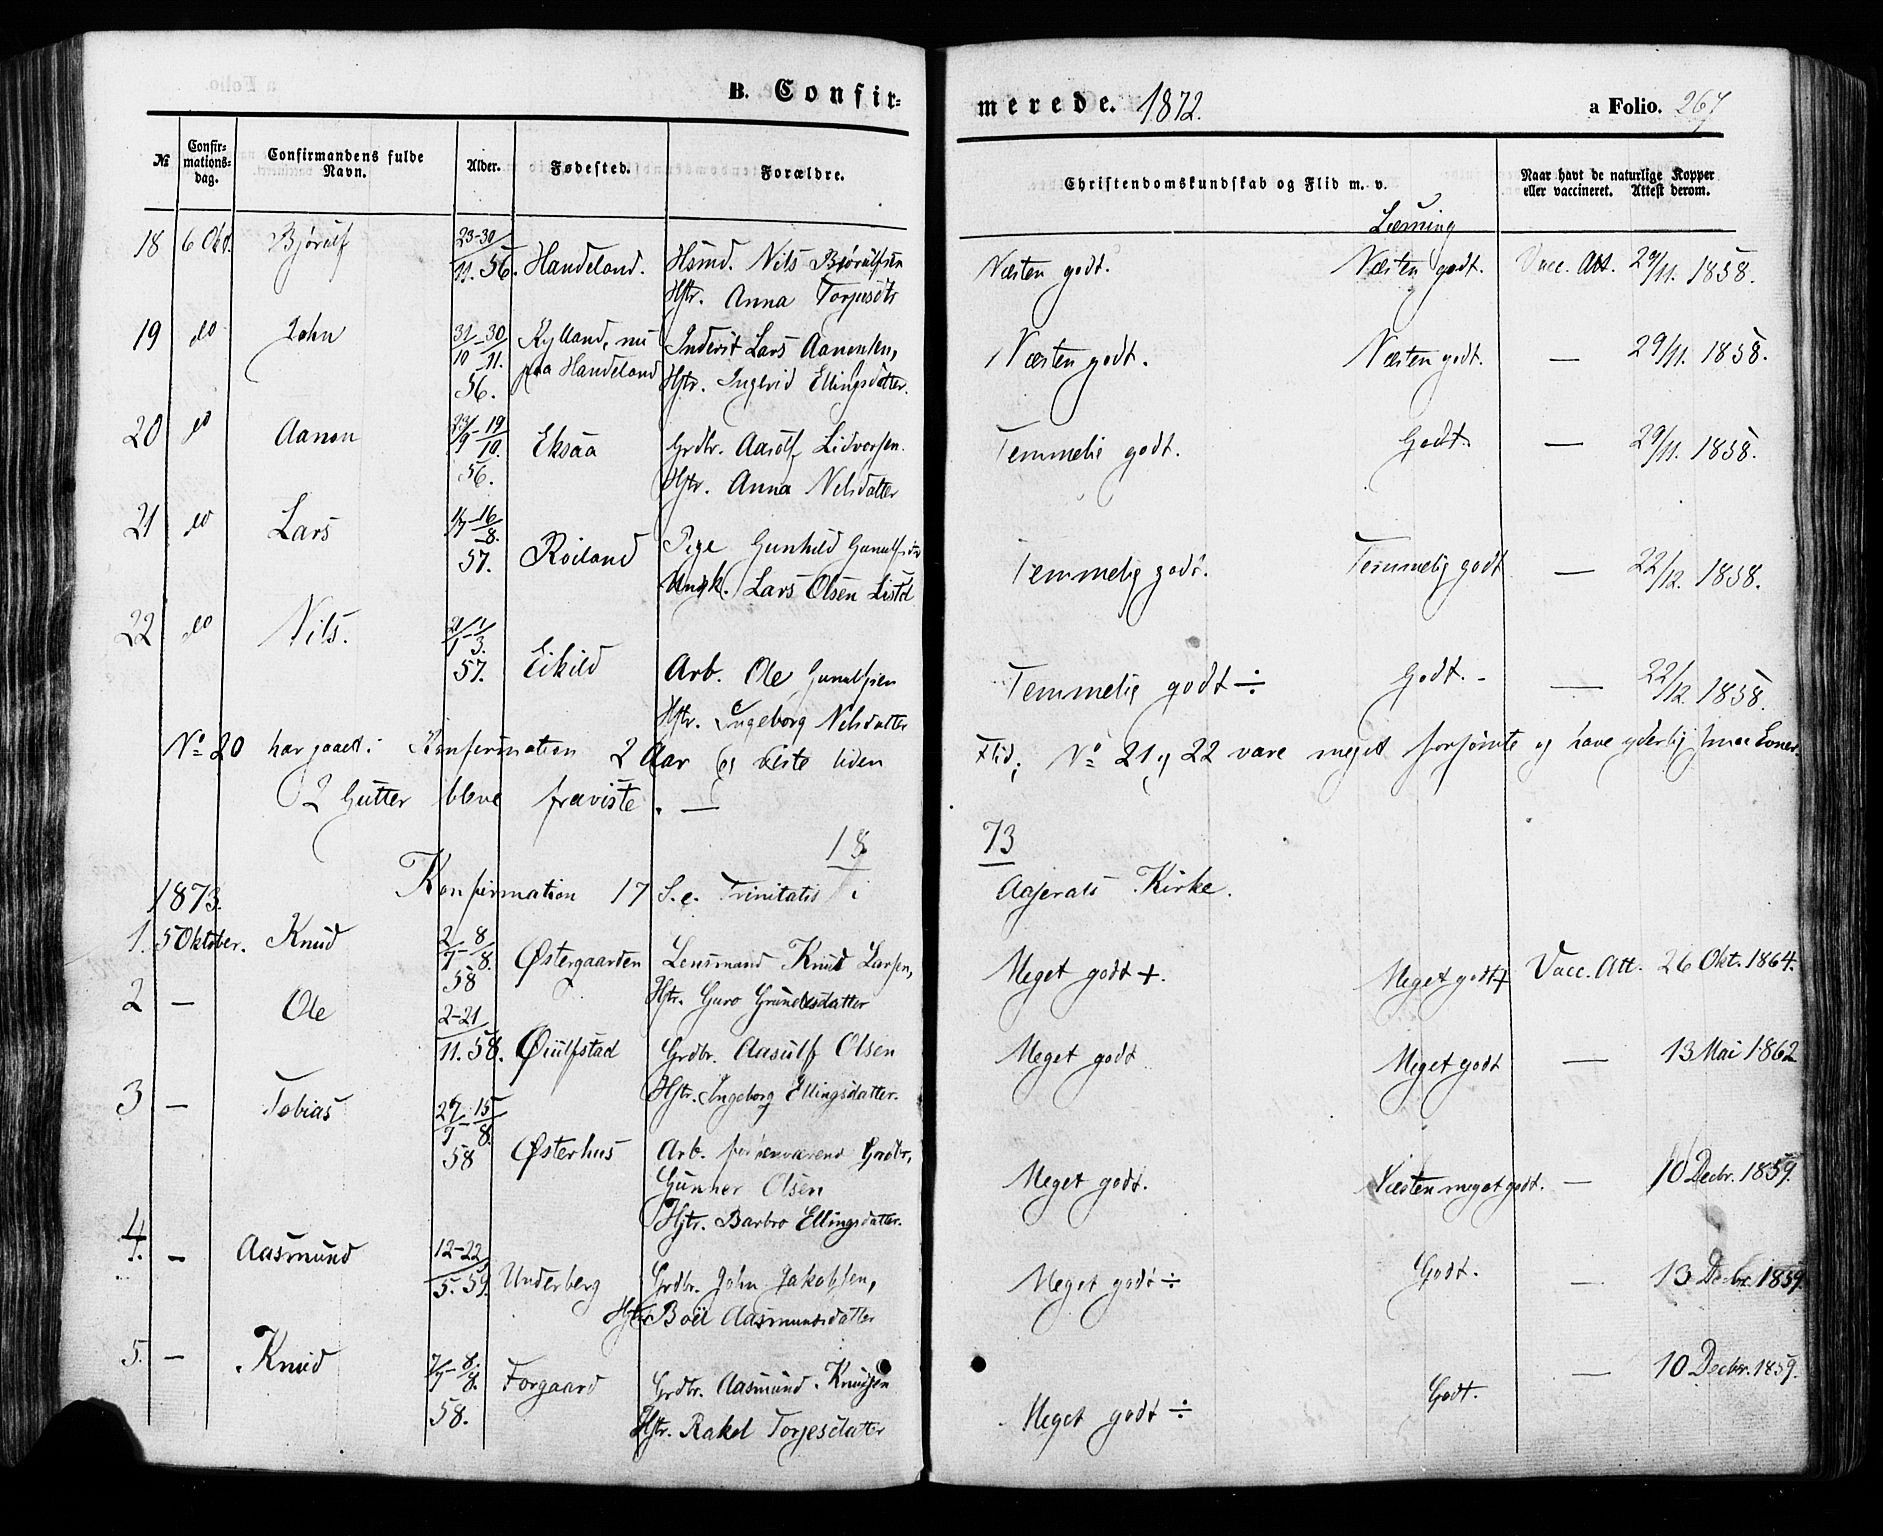 B. Confir-
merede. 1872.
a Folio. 267
№
Confir-
mations-
dag.
Confirmandens fulde
Navn.
Alder.
Fødested.
Forældre.
Christendomskundskab og Flid m. v.
Naar havt de naturlige Kopper
eller vaccineret. Attest derom.
Læsning
18 6 Okt. Bjørulf 23-30/11. 56. Handeland. Hsmd. Nils Bjørulfsen
Hstr. Anna Torjusdtr
Næsten godt. Næsten godt. Vacc. Att. 29/11. 1858.
19 do John 31/10-30/11. 56. Kylland, nu
paa Handeland
Inderst Lars Aanonsen,
Hstr. Ingerid Ellingsdatter.
Næsten godt. Næsten godt. — 29/11. 1858.
20 do Aanon 23/9-19/10. 56. Eksaa Grdbr. Aasulf Lidvorsen.
Hstr. Anna Nelsdatter
Temmelig godt. Godt. — 29/11. 1858.
21 do Lars 1/7-16/8. 57. Røiland Pige Gunhild
Ungk. Lars Olsen
Temmelig godt. Temmelig godt — 22/12. 1858.
22 do Nils. 21/1-1/3. 57. Eikild Arb. Ole Gunulfsen
Hstr. Ingeborg Nelsdatter
Temmelig godt ÷ Godt. - — 22/12. 1858.
No 20 har gaaet i Konfirmation 2 Aar og reiste uden
Flid; No 21 og 22 vare meget forsømte og have yderlig smaa Evner.
2 Gutter bleve fraviste. —
18 73
Konfirmation 17 S. e. Trinitatis i Aaserals Kirke.
1873.
1. 5 Oktober. Knud 2/7-8/8. 58 Østergaarden Lensmand Knud Larsen,
Hstr. Guro
Meget godt +. Meget godt + Vacc. Att. 26 Okt. 1864.
2 — Ole 2-21/11. 58. Øiulfstad Grdbr. Aasulf Olsen
Hstr. Ingeborg Ellingsdatter.
Meget godt Meget godt — 13 Mai 1862
3 — Tobias 27/7-15/8. 58 Østerhus Arb. forhenværend Grdbr,
Gunner Olsen
Hstr. Barbro Ellingsdatter.
Meget godt. Næsten meget godt. — 10 Decbr. 1859.
4. — Aasmund 12-22/5. 59. Underberg Grdbr. John Jakobsen,
Hstr. Boel Aasmundsdatter
Meget godt ÷ Godt. — 13 Decbr. 1859.
5. — Knud 7/7-8/8. 58. Forgaard Grdbr. Aasmund Knudsen
Hstr. Rakel Torjesdatter
Meget godt ÷ Godt. — 10 Decbr. 1859.